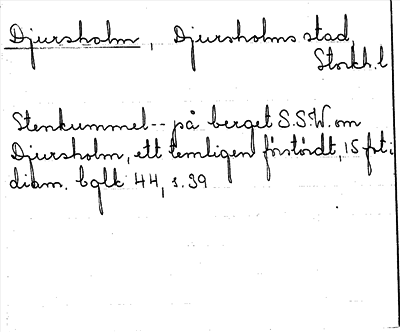 Djursholm, Djursholms stad,
Stockh. l
Stenkummel-- på berget S.S.W. om
Djursholm, ett temligen förstördt, 15 fot i
diam. bglk 44, s. 39